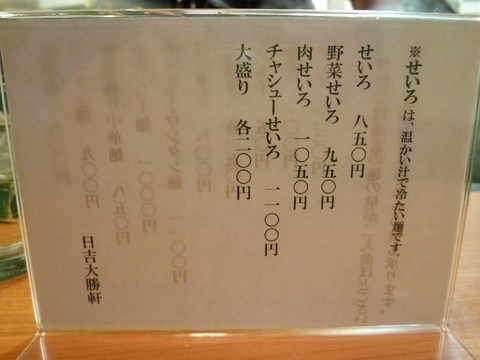 ※せいろは、温かい汁で冷たい麺です。
せいろ 八五〇円
野菜せいろ 九五〇円
肉せいろ 一〇五〇円
チャシューせいろ 一一〇〇円
大盛り 各二〇〇円
日吉大勝軒